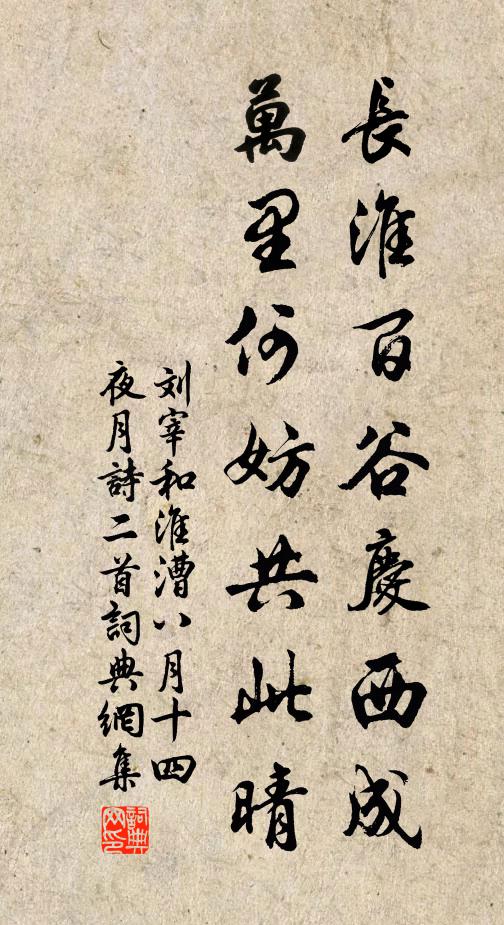 長淮百谷慶西成
萬里何妨共此晴
刘宰和淮漕八月十四
夜月詩二首詞典網集
詞典
网印